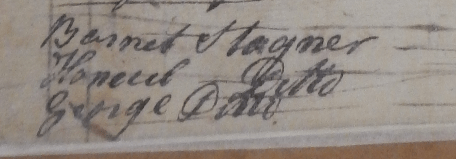 Barnet Stagner
Hanah Ditto
George Ditto